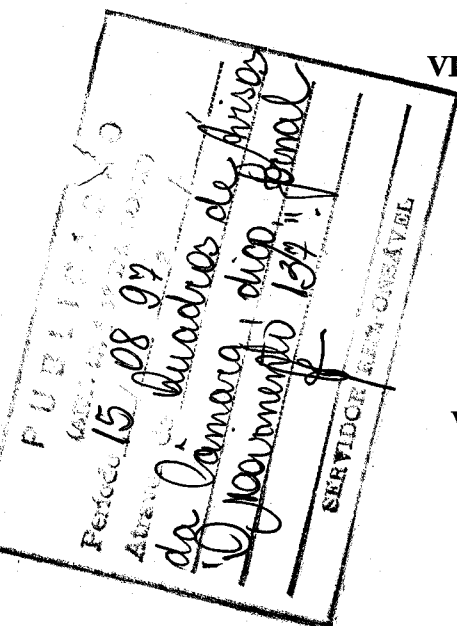 PUBLICAÇÃO
Período 15 08 97
Através de Quadros de Avisos
da Câmara, digo, Jornal
"O movimento 137".
SERVIDOR RESPONSÁVEL
VI
V